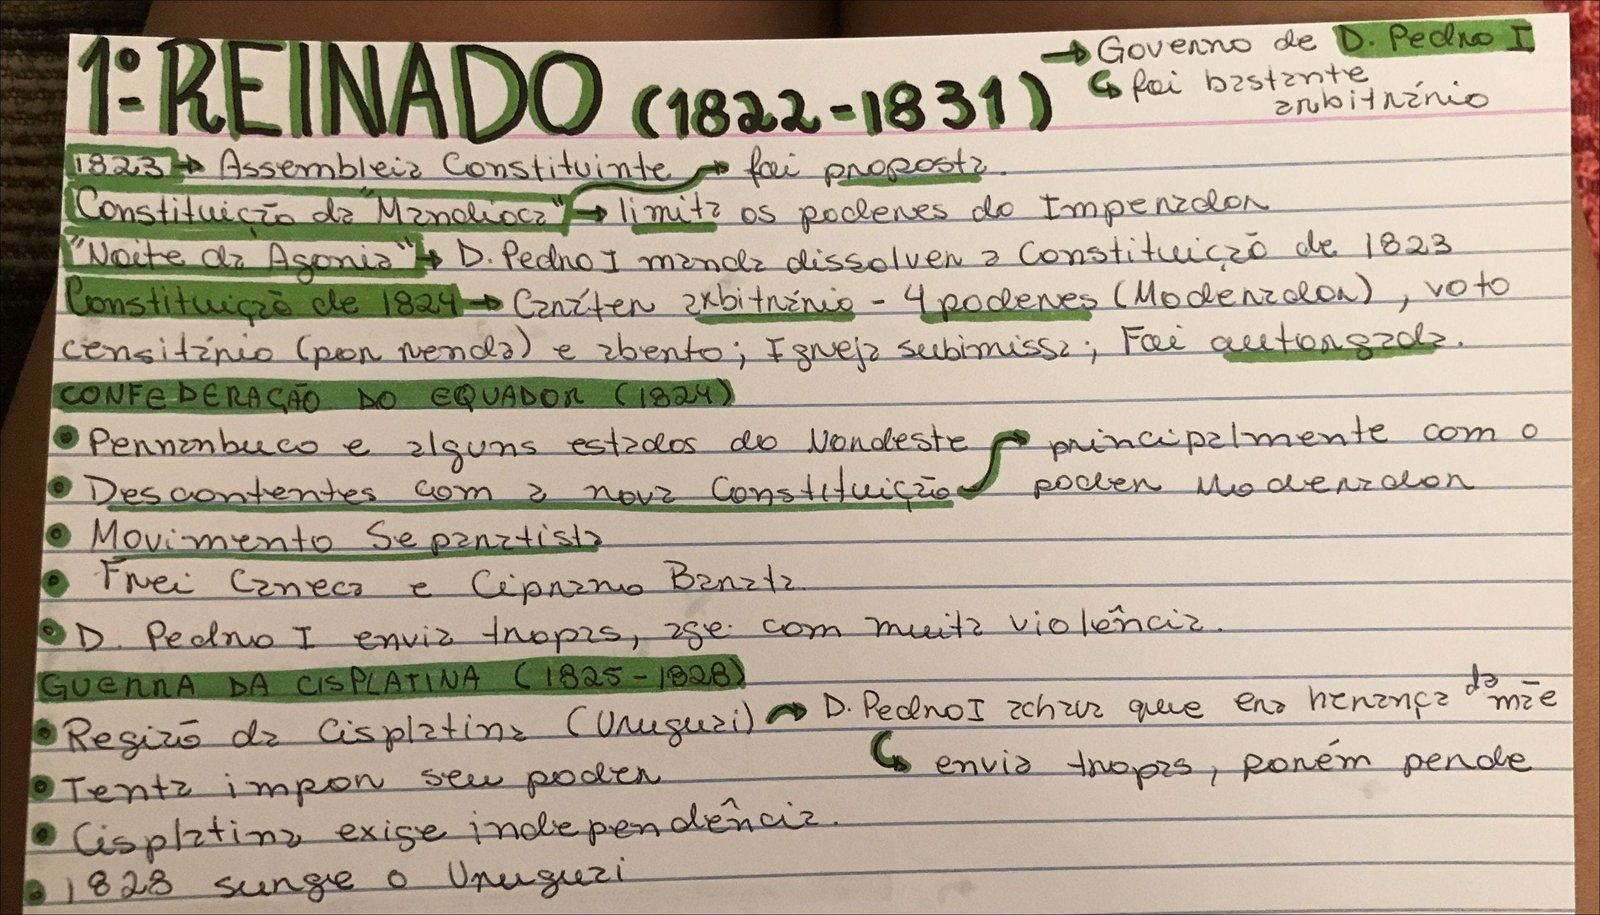 1º REINADO (1822-1831) → Governo de D. Pedro I
↳ foi bastante
arbitrário
1823 → Assembleia Constituinte → foi proposta.
Constituição da "Mandioca" → limita os poderes do Imperador
"Noite da Agonia" → D. Pedro I manda dissolver a Constituição de 1823
Constituição de 1824 → Caráter arbitrário - 4 poderes (Moderador), voto
censitário (por renda) e aberto; Igreja subimissa; Foi outorgada.
CONFEDERAÇÃO DO EQUADOR (1824)
• Pernanbuco e alguns estados do Nordeste → principalmente com o
• Descontentes com a nova Constituição poder Moderador
• Movimento Separatista
• Frei Caneca e Ciprano Barata.
• D. Pedro I envia tropas, age com muita violência.
GUERRA DA CISPLATINA (1825-1828)
• Região da Cisplatina (Uruguai) → D. Pedro I achava que era herança da mãe
↳ envia tropas, porém perde
• Tenta impor seu poder
• Cisplatina exige independência.
• 1828 surge o Uruguai